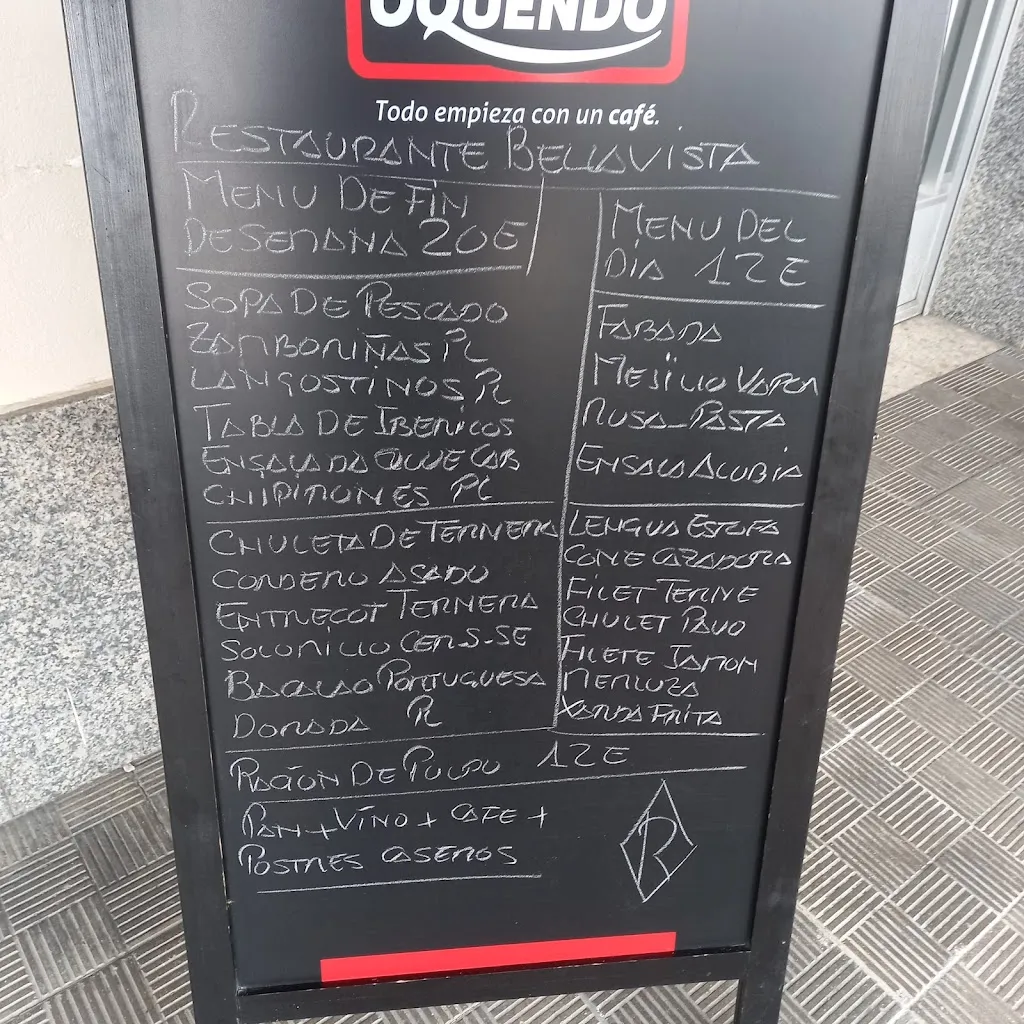 OQUENDO
Todo empieza con un café.
RESTAURANTE BELLAVISTA
MENU DE FIN
DE SEMANA 20E
SOPA DE PESCADO
ZAMBORIÑAS PL
LANGOSTINOS PL
TABLA DE IBERICOS
ENSALADA QUE CAB
CHIPIRONES PL
CHULETA DE TERNERA
CORDERO ASADO
ENTRECOT TERNERA
SOLOMILLO CERS-SE
BACALAO PORTUGUESA
DORADA PL
MENU DEL
DIA 12E
FABADA
MEJILLO VAPOR
RUSA-PASTA
ENSALA ALUBIA
LENGUA ESTOFA
CONE CAZADORA
FILET TERNE
CHULET PAVO
FILETE JAMON
MERLUZA
XARDA FRITA
RACIÓN DE PULPO 12E
PAN + VINO + CAFE +
POSTRES CASEROS
R